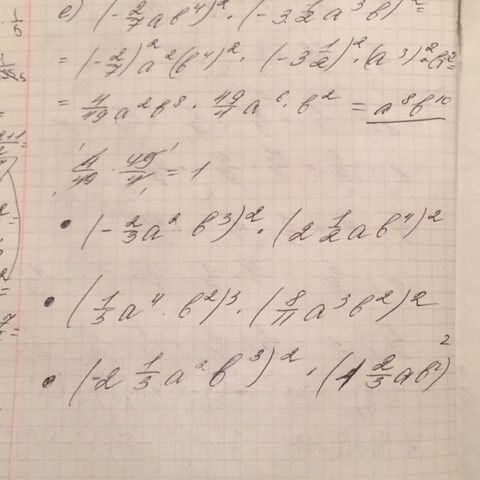 е) (-2/7 ab⁴)² · (-3 1/2 a³b)² =
= (-2/7)² a²(b⁴)² · (-3 1/2)² · (a³)² · b² =
= 4/49 a² b⁸ · 49/4 a⁶ · b² = a⁸b¹⁰
4/49 · 49/4 = 1
• (-2/3 a² b³)² · (2 1/2 ab⁴)²
• (1/3 a⁴ · b²)³ · (8/11 a³b²)²
• (-2 1/3 a² b³)² · (1 2/3 ab²)²